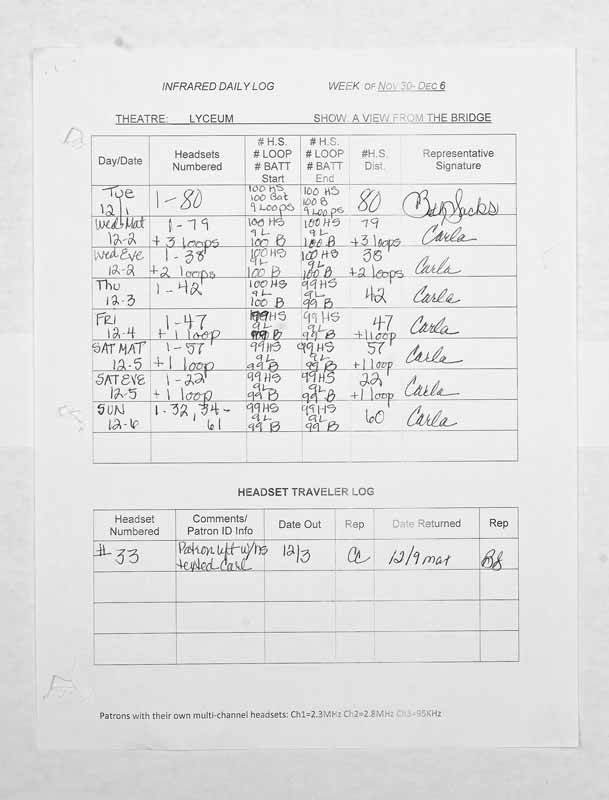 INFRARED DAILY LOG WEEK OF NOV 30- DEC 6
THEATRE: LYCEUM SHOW: A VIEW FROM THE BRIDGE
Day/Date Headsets Numbered # H.S. # LOOP # BATT Start # H.S. # LOOP # BATT End #H.S. Dist. Representative Signature
Tue 12/1 1-80 100 HS 100 Bat 9 Loops 100 HS 100 B 9 Loops 80 Beth Jacks
Wed Mat 12-2 1-79 + 3 loops 100 HS 9L 100 B 100 HS 9L 100 B 79 +3 loops Carla
Wed Eve 12-2 1-38 +2 loops 100 HS 9L 100 B 100 HS 9L 100 B 38 +2 loops Carla
Thu 12-3 1-42 100 HS 9L 100 B 99 HS 9L 99 B 42 Carla
FRI 12-4 1-47 +1 loop 99 HS 9L 99 B 99 HS 9L 99 B 47 +1 loop Carla
SAT MAT 12-5 1-57 +1 loop 99 HS 9L 99 B 99 HS 9L 99 B 57 +1 loop Carla
SAT EVE 12-5 1-22 +1 loop 99 HS 9L 99 B 99 HS 9L 99 B 22 +1 loop Carla
SUN 12-6 1-32, 34-61 99 HS 9L 99 B 99 HS 9L 99 B 60 Carla
HEADSET TRAVELER LOG
Headset Numbered Comments/ Patron ID Info Date Out Rep Date Returned Rep
# 33 Patron left w/hs 12/3 CC 12/9 mat BJ
Patrons with their own multi-channel headsets: Ch1=2.3MHz Ch2=2.8MHz Ch3=95KHz